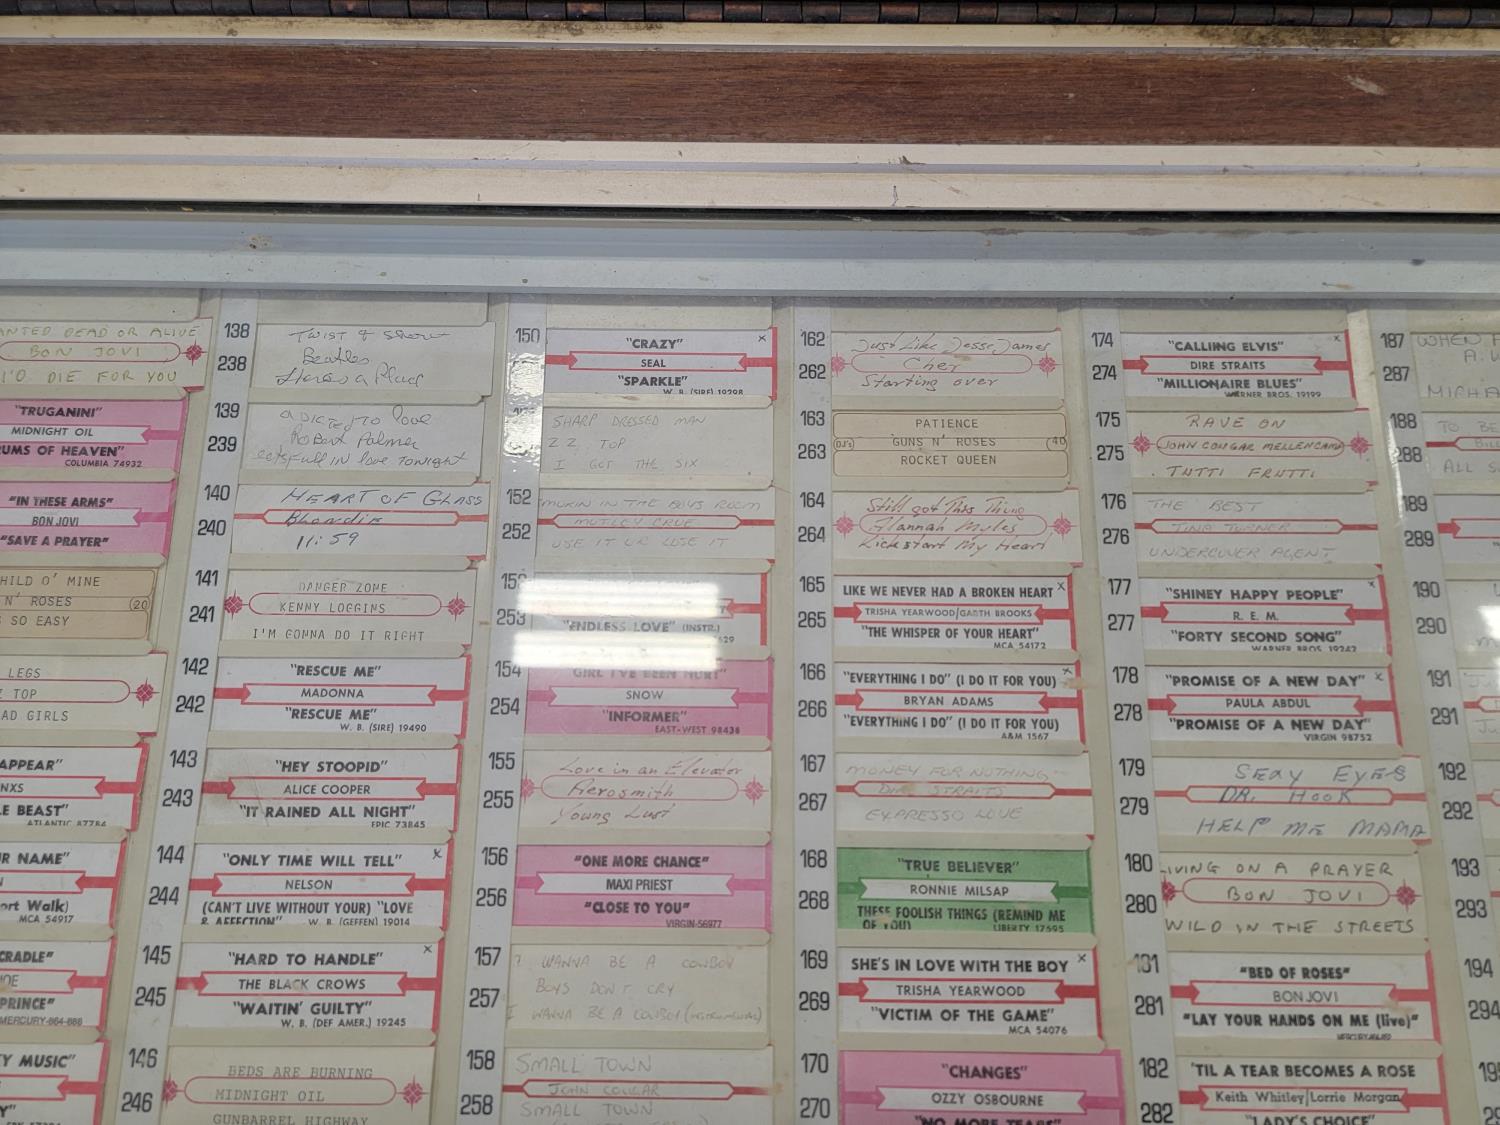 ANTED DEAD OR ALIVE
BON JOVI
I'D DIE FOR YOU
"TRUGANINI"
MIDNIGHT OIL
UMS OF HEAVEN"
COLUMBIA 74932
"IN THESE ARMS"
BON JOVI
"SAVE A PRAYER"
HILD O' MINE
N' ROSES
(20
SO EASY
LEGS
Z TOP
AD GIRLS
APPEAR"
NXS
LE BEAST"
ATLANTIC 87784
R NAME"
ort Walk)
MCA 54917
CRADLE"
OE
PRINCE"
MERCURY-864-888
TY MUSIC"
138
238
TWIST & Shout
Beatles
Theres a Place
139
239
aDICTED TO love
Robert Palmer
Letsfull IN love TONIGHT
140
240
HEART OF GLASS
Blondie
11:59
141
241
DANGER ZONE
KENNY LOGGINS
I'M GONNA DO IT RIGHT
142
242
"RESCUE ME"
MADONNA
"RESCUE ME"
W. B. (SIRE) 19490
143
243
"HEY STOOPID"
ALICE COOPER
"IT RAINED ALL NIGHT"
EPIC 73845
144
244
"ONLY TIME WILL TELL" x
NELSON
(CAN'T LIVE WITHOUT YOUR) "LOVE
& AFFECTION" W. B. (GEFFEN) 19014
145
245
"HARD TO HANDLE" x
THE BLACK CROWS
"WAITIN' GUILTY"
W. B. (DEF AMER.) 19245
146
246
BEDS ARE BURNING
MIDNIGHT OIL
GUNBARREL HIGHWAY
150
"CRAZY" x
SEAL
"SPARKLE"
W. B. (SIRE) 19298
SHARP DRESSED MAN
Z Z TOP
I GOT THE SIX
152
252
SMOKIN IN THE BOYS ROOM
MOTLEY CRUE
USE IT OR LOSE IT
253
"ENDLESS LOVE" (INSTR.)
154
254
GIRL I'VE BEEN HURT"
SNOW
"INFORMER"
EAST-WEST 98438
155
255
Love in an Elevator
Aerosmith
Young Lust
156
256
"ONE MORE CHANCE"
MAXI PRIEST
"CLOSE TO YOU"
VIRGIN-56977
157
257
I WANNA BE A COWBOY
BOYS DON'T CRY
I WANNA BE A COWBOY (INSTRUMENTAL)
158
258
SMALL TOWN
JOHN COUGAR
SMALL TOWN
162
262
Just Like Jesse James
Cher
Starting over
163
263
PATIENCE
(DJ's) GUNS N' ROSES (40
ROCKET QUEEN
164
264
Still got This Thing
Alannah Myles
Kick start My Heart
165
265
LIKE WE NEVER HAD A BROKEN HEART x
TRISHA YEARWOOD/GARTH BROOKS
"THE WHISPER OF YOUR HEART"
MCA 54172
166
266
"EVERYTHING I DO" (I DO IT FOR YOU) x
BRYAN ADAMS
"EVERYTHING I DO" (I DO IT FOR YOU)
A&M 1567
167
267
MONEY FOR NOTHING
DIRE STRAITS
EXPRESSO LOVE
168
268
"TRUE BELIEVER"
RONNIE MILSAP
THESE FOOLISH THINGS (REMIND ME
OF YOU) LIBERTY 17595
169
269
SHE'S IN LOVE WITH THE BOY x
TRISHA YEARWOOD
"VICTIM OF THE GAME"
MCA 54076
170
270
"CHANGES"
OZZY OSBOURNE
"NO MORE TEARS"
174
274
"CALLIING ELVIS" x
DIRE STRAITS
"MILLIONAIRE BLUES"
WARNER BROS. 19199
175
275
RAVE ON
JOHN COUGAR MELLENCAMP
TUTTI FRUTTI
176
276
THE BEST
TINA TURNER
UNDERCOVER AGENT
177
277
"SHINEY HAPPY PEOPLE" x
R. E. M.
"FORTY SECOND SONG"
WARNER BROS. 19242
178
278
"PROMISE OF A NEW DAY" x
PAULA ABDUL
"PROMISE OF A NEW DAY"
VIRGIN 98752
179
279
SEXY EYES
DR. HOOK
HELP ME MAMA
180
280
LIVING ON A PRAYER
BON JOVI
WILD IN THE STREETS
181
281
"BED OF ROSES"
BON JOVI
"LAY YOUR HANDS ON ME (live)"
182
282
'TIL A TEAR BECOMES A ROSE
Keith Whitley/Lorrie Morgan
"LADY'S CHOICE"
187
287
WHEN
188
288
TO BE
ALL S
189
289
190
290
191
291
192
292
193
293
194
294